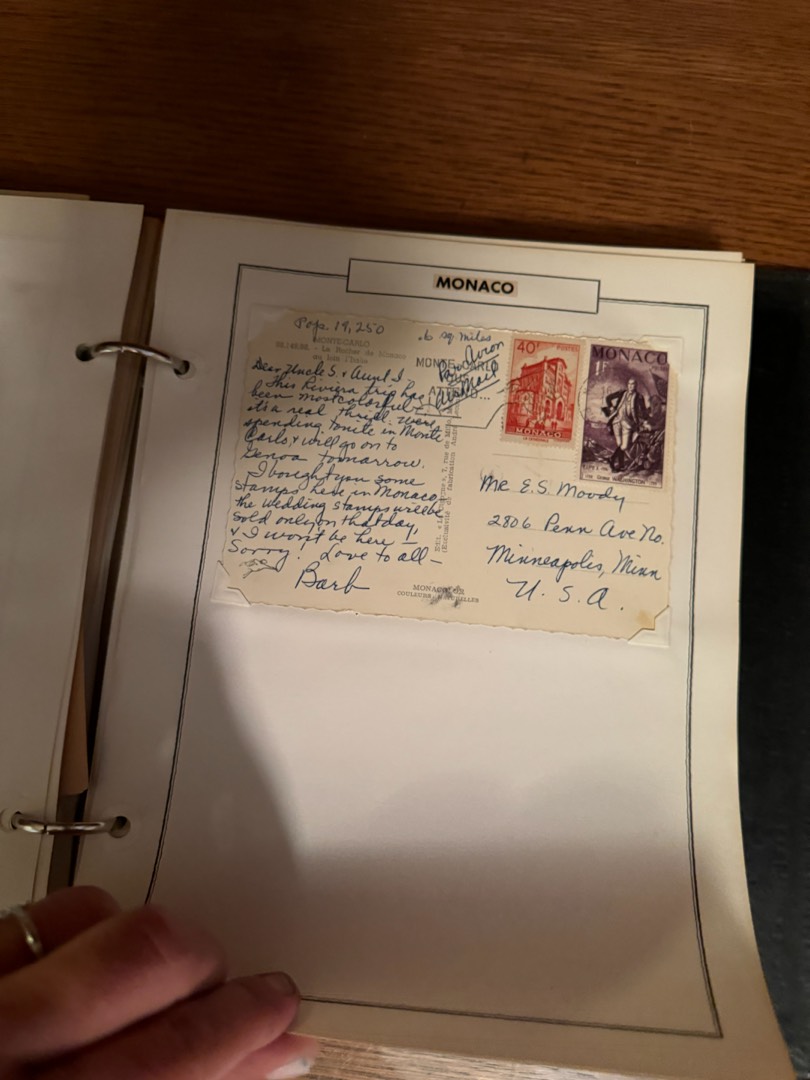 MONACO
Pop. 19,250
.6 sq miles
MONTE-CARLO
- Le Rocher de Monaco
Dear Uncle S. & Aunt I
This Riviera trip has
been most colorful &
it's a real thrill. Were
spending tonite in Monte
Carlo, & will go on to
Genoa tomorrow.
I bought you some
stamps here in Monaco,
the wedding stamps will be
sold only on that day,
& I won't be here –
Sorry! Love to all –
Barb
MONTE-CARLO
Par Avion
Air Mail
40F POSTES
MONACO
MONACO
1F
WASHINGTON
Mr E.S. Moody
2806 Penn Ave No.
Minneapolis, Minn
U. S. A.
MONACOLOR
COULEURS NATURELLES